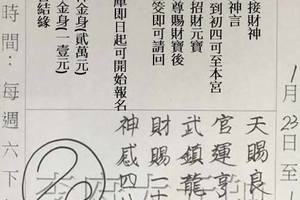 1月
23日至
接財神
神言
到初四可至本宮
招財元寶
尊賜財寶後
筊即可請回
庫即日起可開始報名
金身(貳萬元)
金身(一壹元)
結緣
時間：每週六下
天賜良
官運亨
武鎮龍
財賜一
神感四